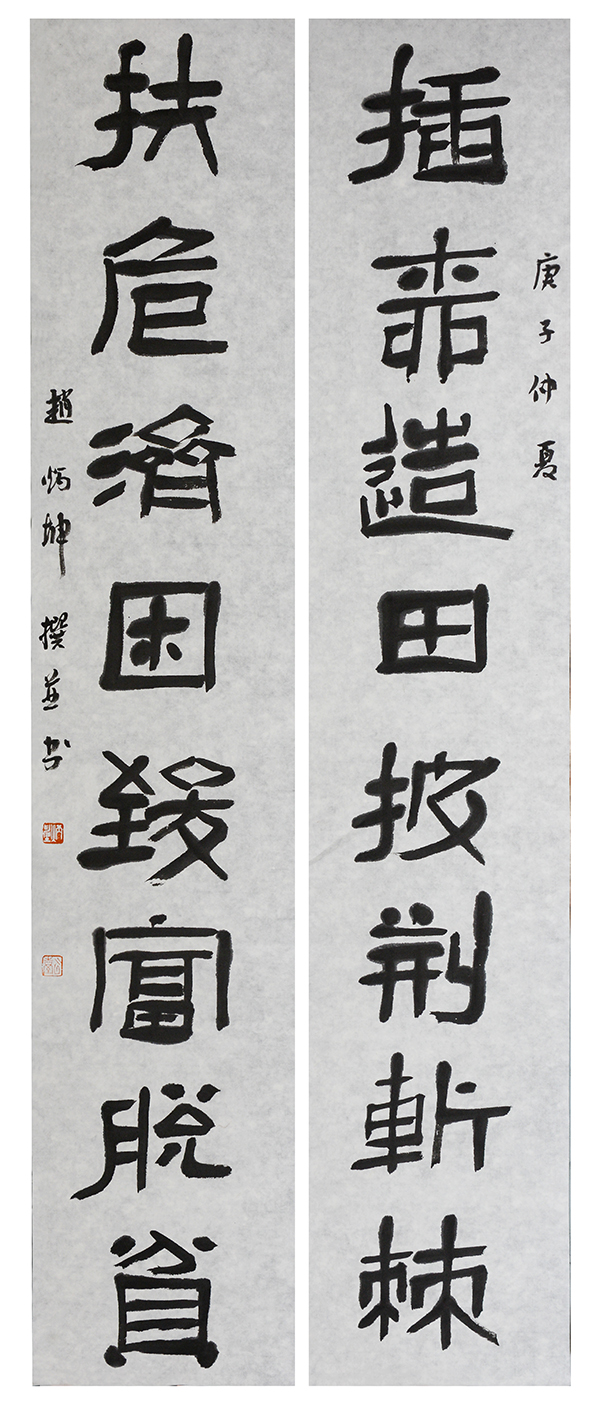 庚子仲夏
插造田披荊斬棘
扶危濟困致富脫貧
趙炳坤撰並書